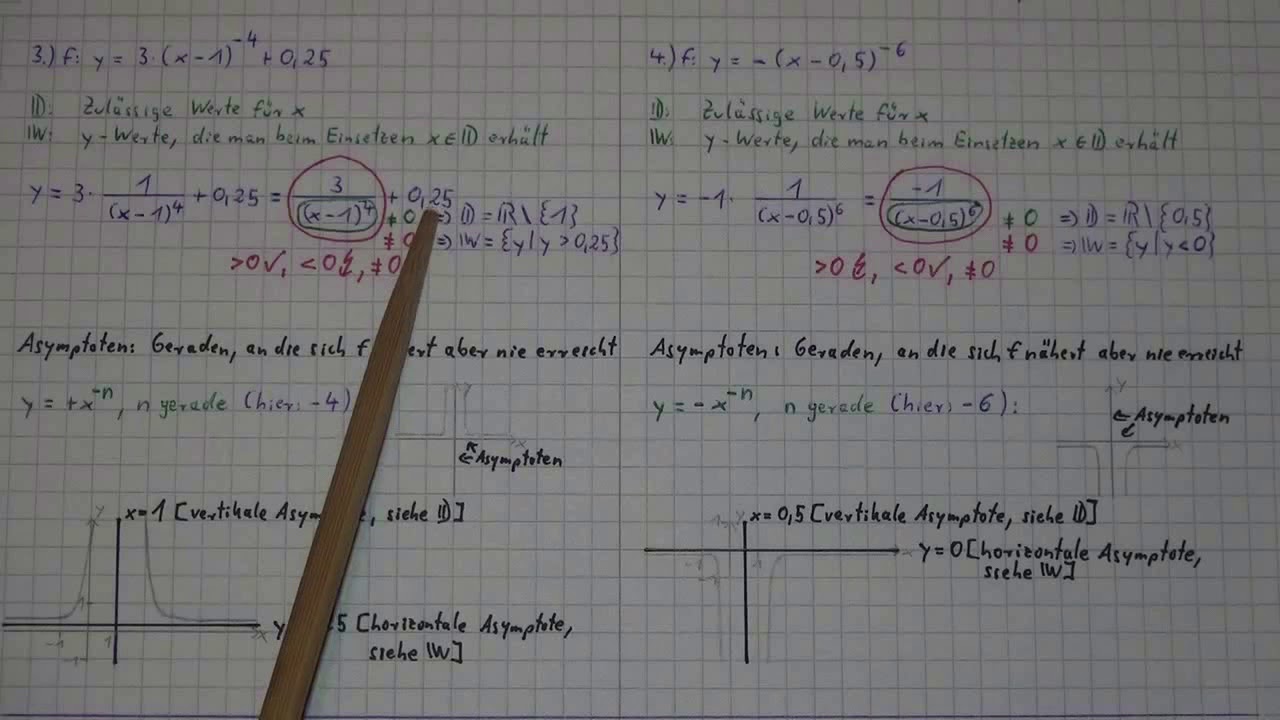 3.) f: y = 3·(x-1)^-4 + 0,25
ID: Zulässige Werte für x
IW: y-Werte, die man beim Einsetzen x∈ID erhält
y = 3· 1/(x-1)^4 + 0,25 = 3/(x-1)^4 + 0,25
≠ 0 => ID = IR\{1}
≠ 0 => IW = {y|y>0,25}
>0✓, <0↯, ≠0
Asymptoten: Geraden, an die sich f aber nie erreicht
y = +x^-n, n gerade (hier: -4)
y
x
Asymptoten
x=1 [vertikale siehe ID]
y
1
-1
1
-1
x
y [horizontale Asymptote,
siehe IW]
4.) f: y = -(x-0,5)^-6
ID: Zulässige Werte für x
IW: y-Werte, die man beim Einsetzen x∈ID erhält
y = -1· 1/(x-0,5)^6 = -1/(x-0,5)^6
≠ 0 => ID = IR\{0,5}
≠ 0 => IW = {y|y<0}
>0↯, <0✓, ≠0
Asymptoten: Geraden, an die sich f nähert aber nie erreicht
y = -x^-n, n gerade (hier: -6):
y
x
Asymptoten
1 y x=0,5 [vertikale Asymptote, siehe ID]
x y=0 [horizontale Asymptote,
siehe IW]
-1
1
-1